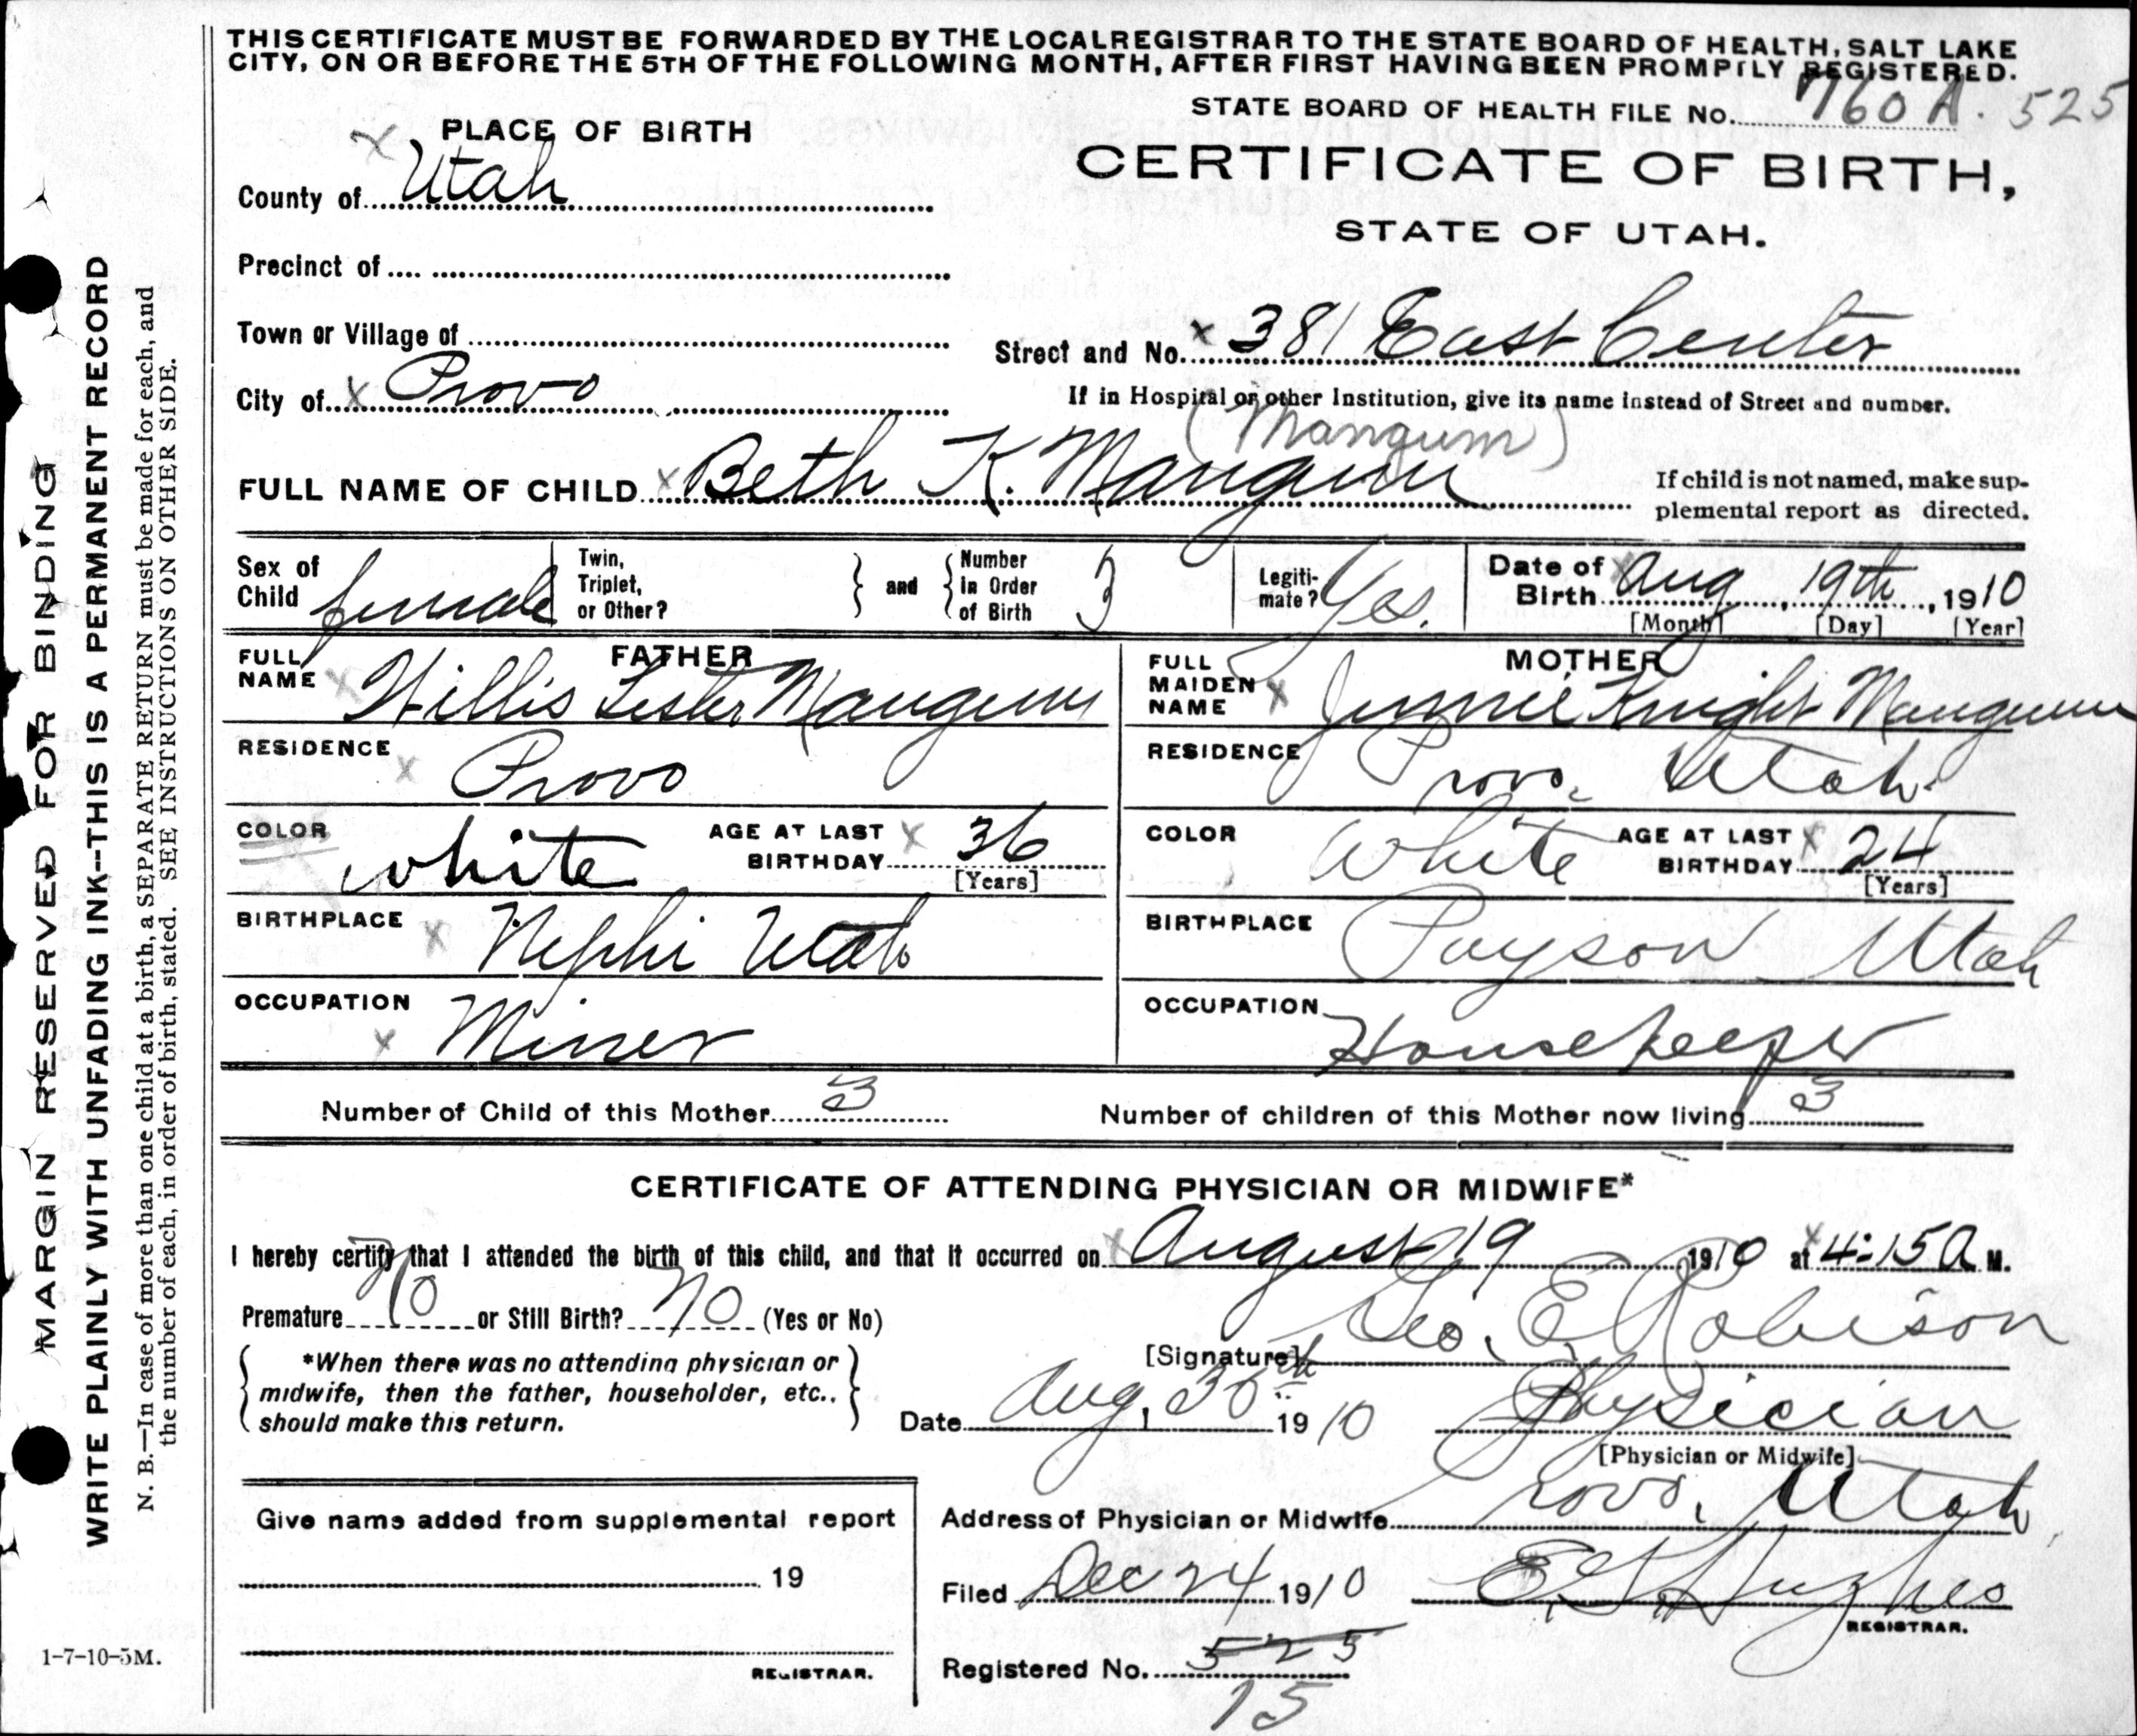 THIS CERTIFICATE MUST BE FORWARDED BY THE LOCAL REGISTRAR TO THE STATE BOARD OF HEALTH, SALT LAKE
CITY, ON OR BEFORE THE 5TH OF THE FOLLOWING MONTH, AFTER FIRST HAVING BEEN PROMPTLY REGISTERED.
STATE BOARD OF HEALTH FILE No. 760 A. 525
PLACE OF BIRTH
CERTIFICATE OF BIRTH,
STATE OF UTAH.
County of Utah
Precinct of
Town or Village of
Street and No. x 381 East Center
City of x Provo
If in Hospital or other Institution, give its name instead of Street and number.
(Mangum)
FULL NAME OF CHILD x Beth K. Mangum
If child is not named, make sup-
plemental report as directed.
Sex of Child female
Twin, Triplet, or Other?
and
Number in Order of Birth 3
Legiti-mate? Yes.
Date of Birth Aug, 19th, 1910
[Month] [Day] [Year]
FATHER
FULL NAME x Willis Lester Mangum
RESIDENCE x Provo
COLOR white
AGE AT LAST BIRTHDAY x 36
[Years]
BIRTHPLACE x Nephi Utah
OCCUPATION x Miner
MOTHER
FULL MAIDEN NAME x Jennie Knight Mangum
RESIDENCE Provo, Utah.
COLOR White
AGE AT LAST BIRTHDAY x 24
[Years]
BIRTHPLACE Payson Utah
OCCUPATION Housekeeper
Number of Child of this Mother 3
Number of children of this Mother now living 3
CERTIFICATE OF ATTENDING PHYSICIAN OR MIDWIFE*
I hereby certify that I attended the birth of this child, and that it occurred on x August 19 1910 at x 4:15 A M.
Premature no or Still Birth? no (Yes or No)
*When there was no attending physician or
midwife, then the father, householder, etc.,
should make this return.
[Signature] Geo. E. Robison
Date Aug, 30th 1910
Physician
[Physician or Midwife]
Address of Physician or Midwife Provo, Utah
Give name added from supplemental report
19
REGISTRAR.
Filed Dec 24 1910
E. G. Hughes
REGISTRAR.
Registered No. 525
15
1-7-10-5M.
MARGIN RESERVED FOR BINDING
WRITE PLAINLY WITH UNFADING INK--THIS IS A PERMANENT RECORD
N. B.—In case of more than one child at a birth, a SEPARATE RETURN must be made for each, and
the number of each, in order of birth, stated. SEE INSTRUCTIONS ON OTHER SIDE.